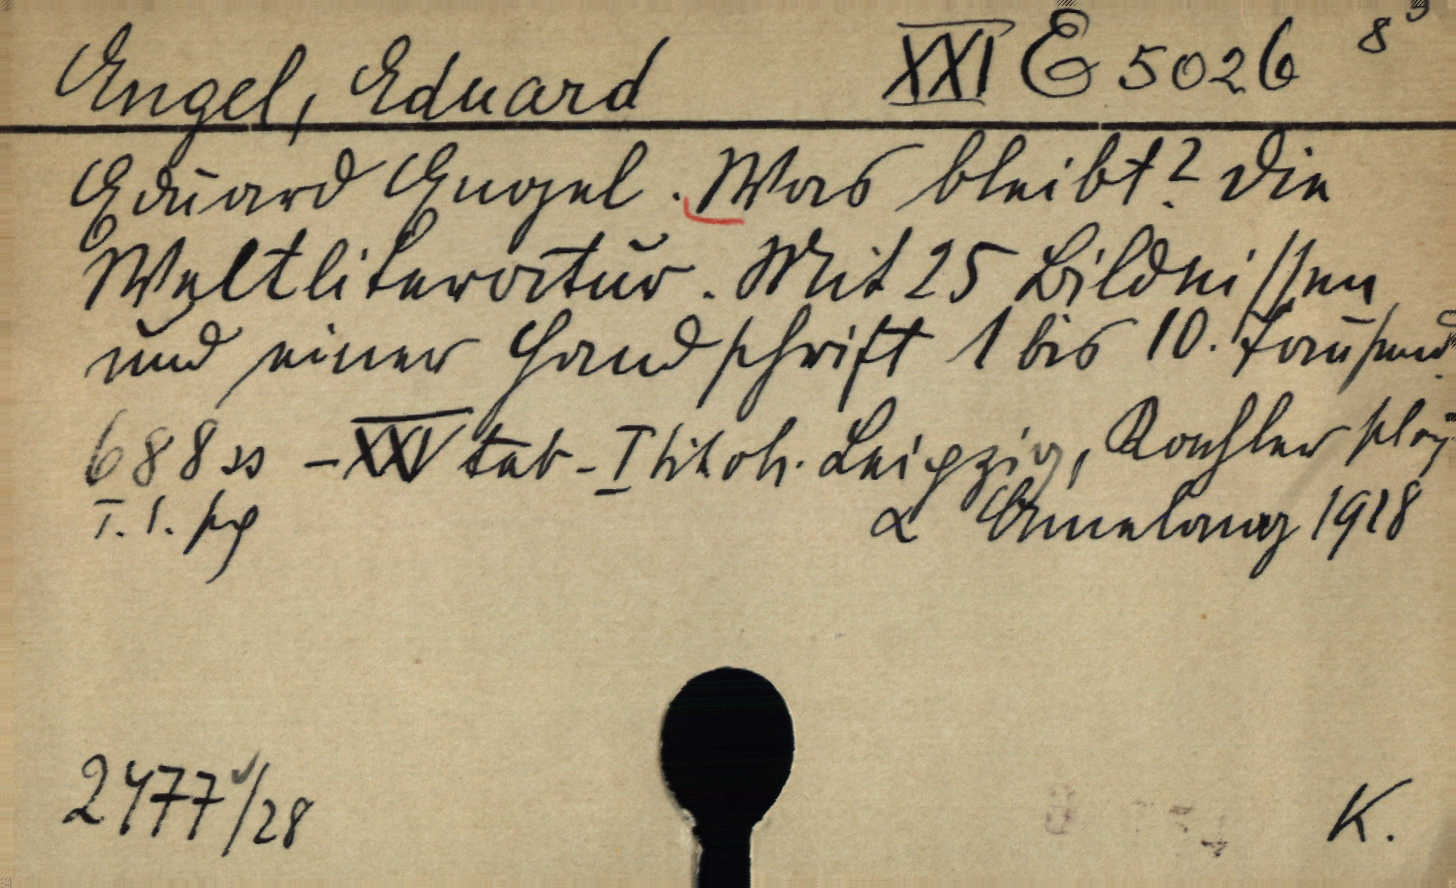 Engel, Eduard XXI E 5026 8°
Eduard Engel. Was bleibt? Die
Weltliteratur. Mit 25 Bildnissen
und einer Handschrift 1 bis 10. Tausend.
688 ss - XXV tab - I tit oh. Leipzig, Koehler
T. I. & Amelang 1928
2477/28 K.